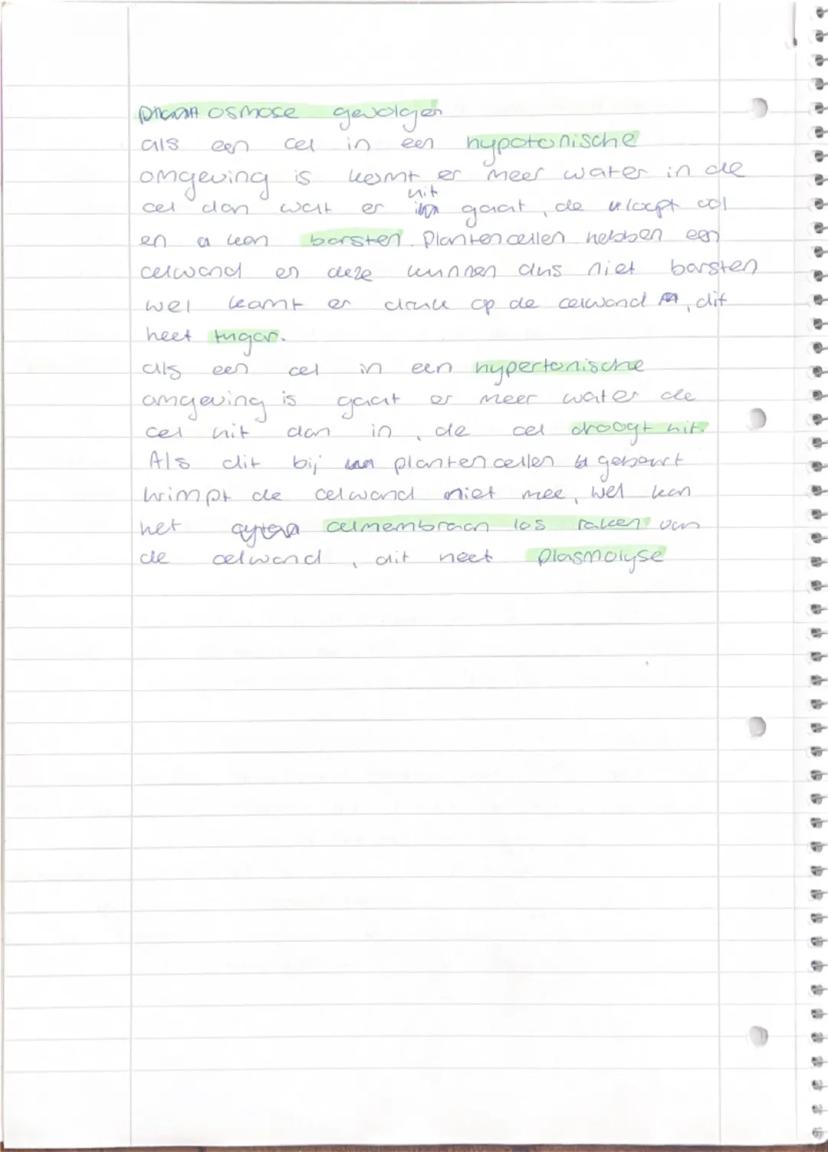 osmose gevolgen
als een cel in een hypotonische
omgeving is komt er meer water in de
cel dan wat er uit gaat, de loopt vol
en kan barsten. Plantencellen hebben een
celwand en deze kunnen dus niet barsten
wel komt er druk op de celwand, dit
heet turgor.
als een cel in een hypertonische
omgeving is gaat er meer water de
cel uit dan in, de cel droogt uit.
Als dit bij plantencellen gebeurt
krimpt de celwand niet mee, wel kan
het celmembraan los raken van
de celwand, dit heet plasmolyse